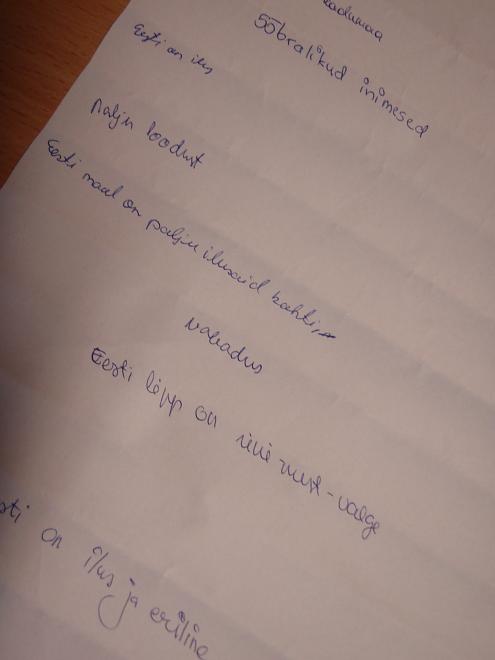 Sõbralikud inimesed
Eesti on ilus
palju loodust
Eesti maal on palju ilusaid kohti,
Vabadus
Eesti lipp on sini must-valge
on ilus ja eriline